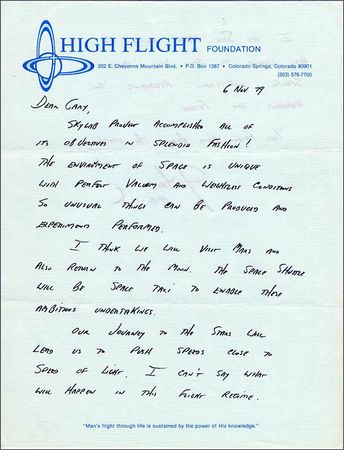 HIGH FLIGHT FOUNDATION
202 E. Cheyenne Mountain Blvd. • P.O. Box 1387 • Colorado Springs, Colorado 80901
(303) 576-7700
6 NOV 79
DEAR GARY,
SKYLAB PROJECT ACCOMPLISHED ALL OF
ITS OBJECTIVES IN SPLENDID FASHION!
THE ENVIRONMENT OF SPACE IS UNIQUE
WITH PERFECT VACUUM AND WEIGHTLESS CONDITIONS
SO UNUSUAL THINGS CAN BE PRODUCED AND
EXPERIMENTS PERFORMED.
I THINK WE WILL VISIT MARS AND
ALSO RETURN TO THE MOON. THE SPACE SHUTTLE
WILL BE SPACE TAXI TO ENABLE THESE
AMBITIOUS UNDERTAKINGS.
OUR JOURNEY TO THE STARS WILL
LEAD US TO PUSH SPEEDS CLOSE TO
SPEED OF LIGHT. I CAN'T SAY WHAT
WILL HAPPEN IN THIS FLIGHT REGIME.
"Man's flight through life is sustained by the power of His knowledge."